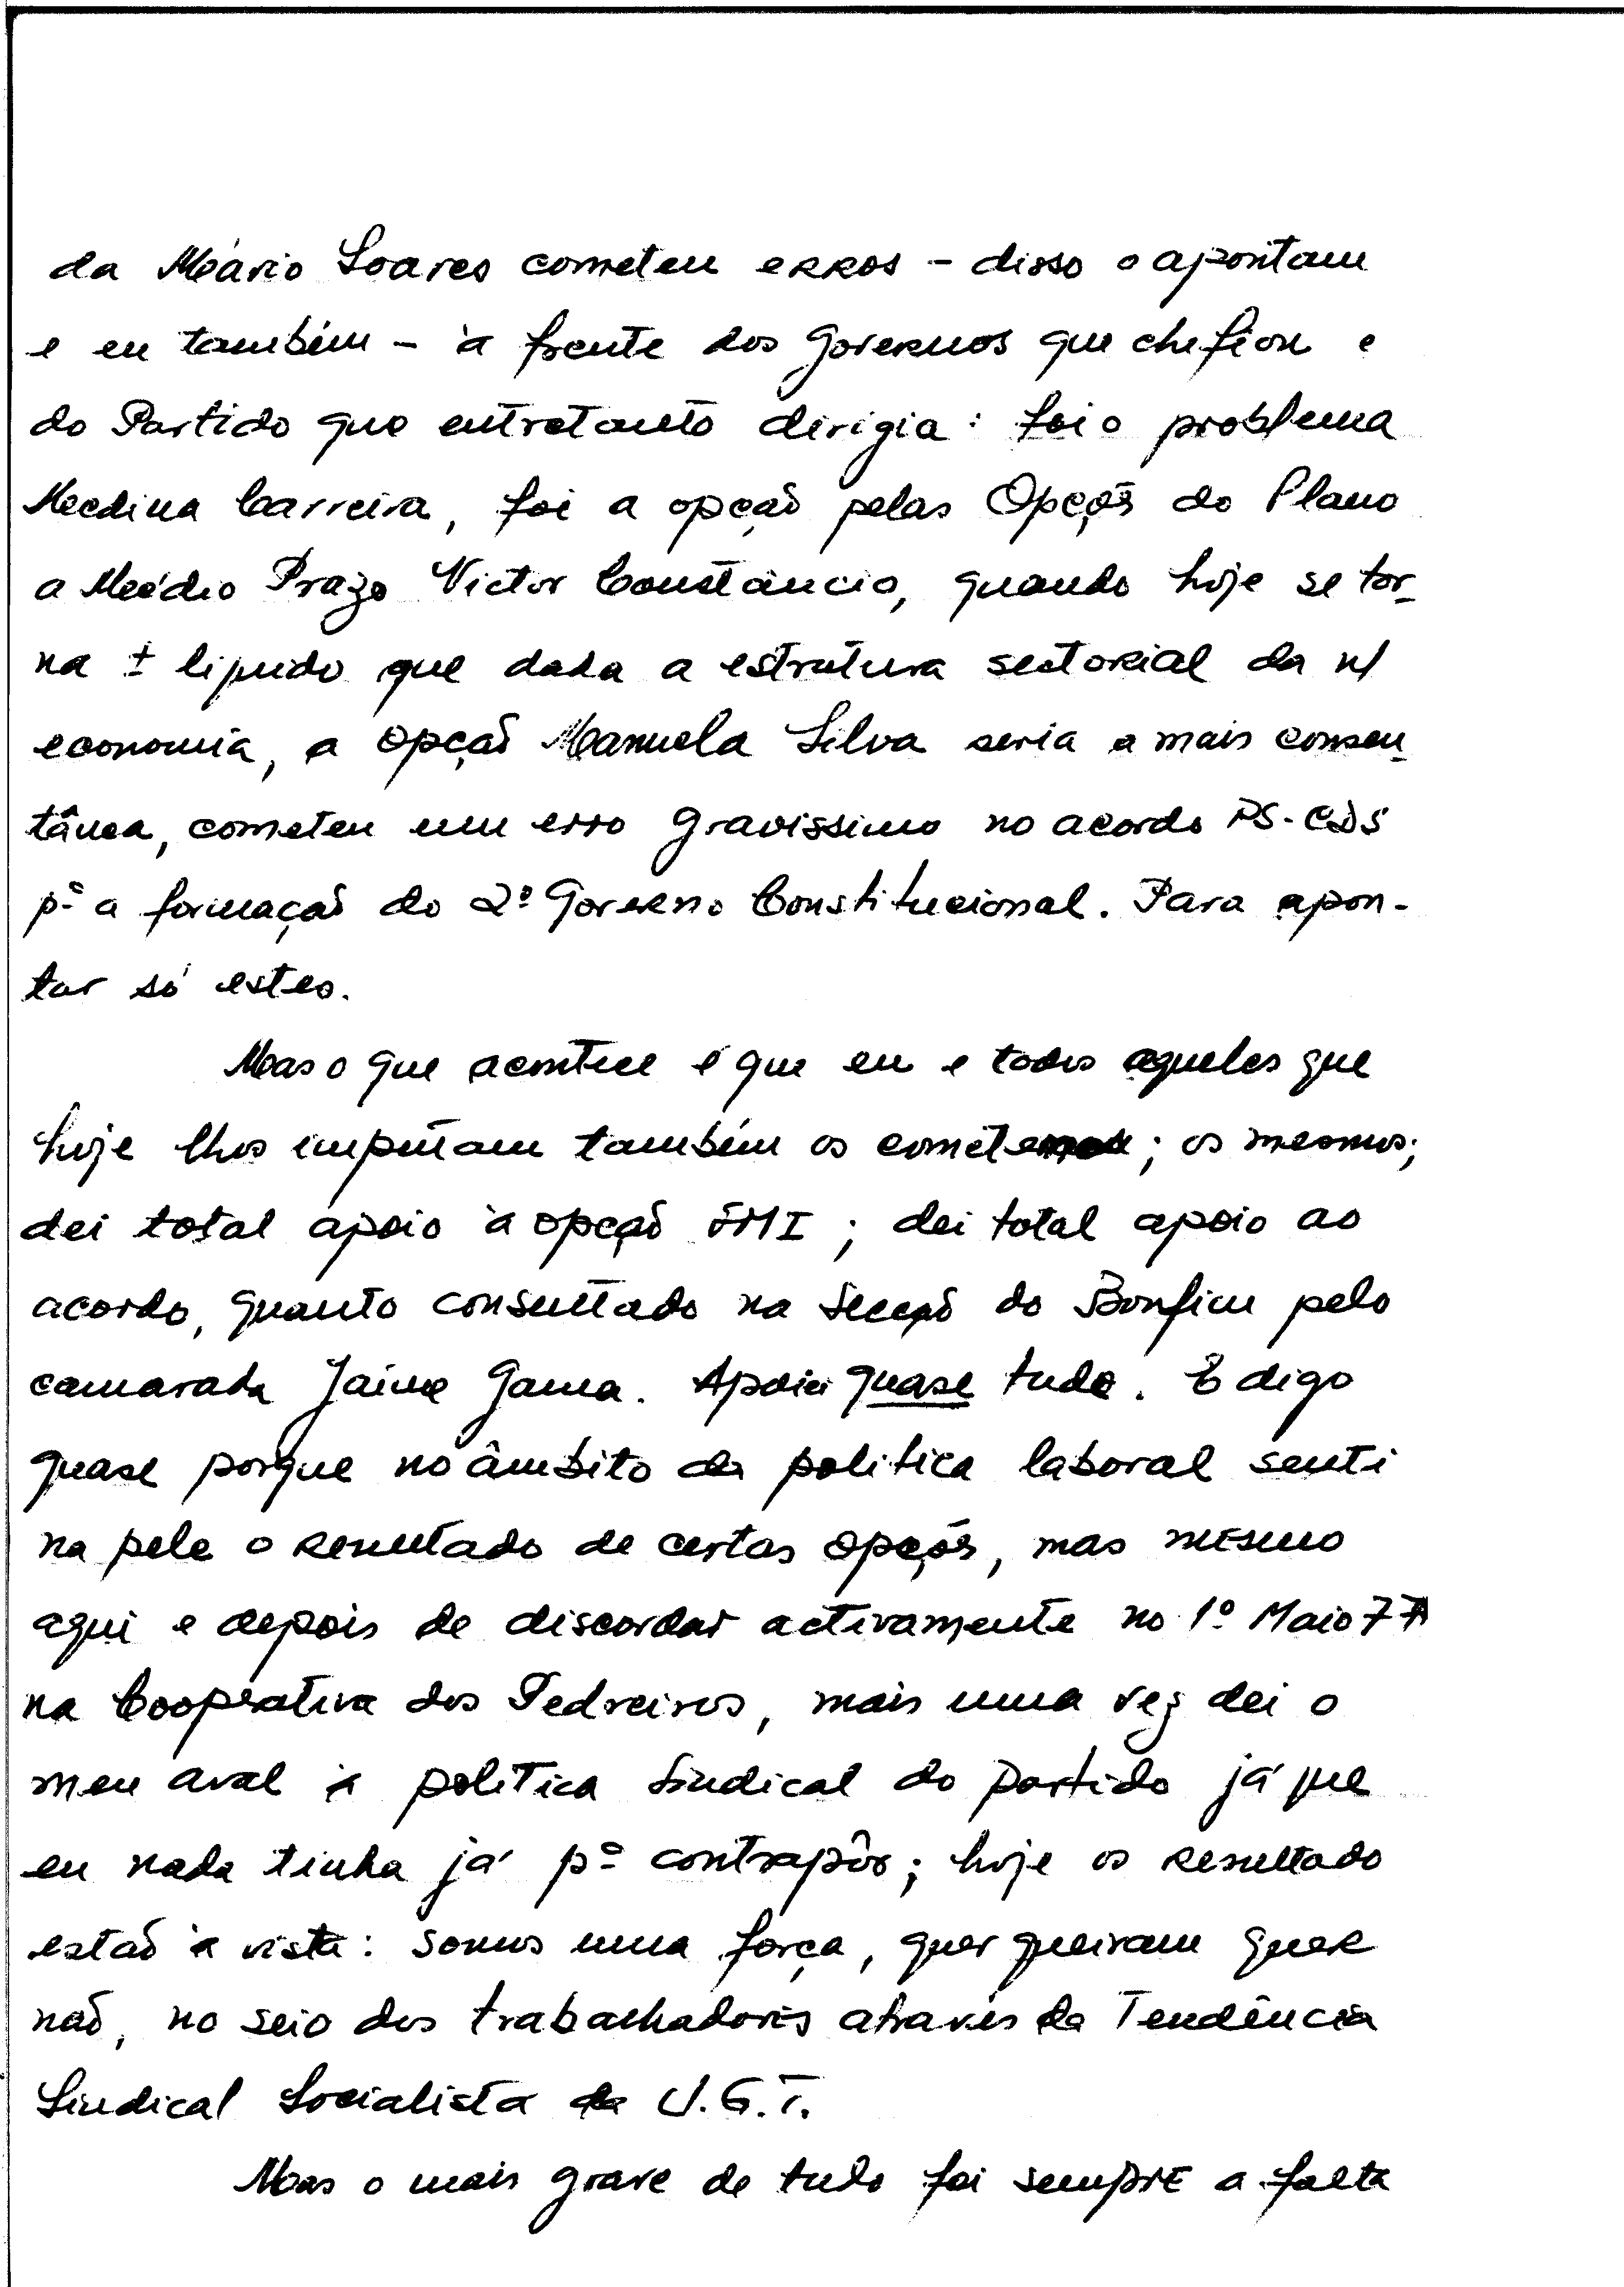 da Mário Soares cometeu erros - disso o apontam
e eu também - à frente dos Governos que chefiou e
do Partido que entretanto dirigia: foi o problema
Medina Carreira, foi a opção pelas Opções do Plano
a Médio Prazo Victor Constâncio, quando hoje se tor-
na ± liquido que dada a estrutura sectorial da n/
economia, a opção Manuela Silva seria a mais consen-
tânea, cometeu um erro gravissimo no acordo PS-CDS
pª a formação do 2º Governo Constitucional. Para apon-
tar só estes.
Mas o que acontece é que eu e todos aqueles que
hoje lhos imputam também os ; os mesmos;
dei total apoio à opção FMI; dei total apoio ao
acordo, quanto consultado na Secção do Bonfim pelo
camarada Jaime Gama. Apoiei quase tudo. E digo
quase porque no âmbito da politica laboral senti
na pele o resultado de certas opções, mas mesmo
aqui e depois de discordar activamente no 1º Maio 77
na Cooperativa dos Pedreiros, mais uma vez dei o
meu aval à politica Sindical do partido já que
eu nada tinha já pª contrapôr; hoje os resultado
estão à vista: somos uma força, quer queiram quer
não, no seio dos trabalhadores através da Tendência
Sindical Socialista da U.G.T.
Mas o mais grave de tudo foi sempre a falta